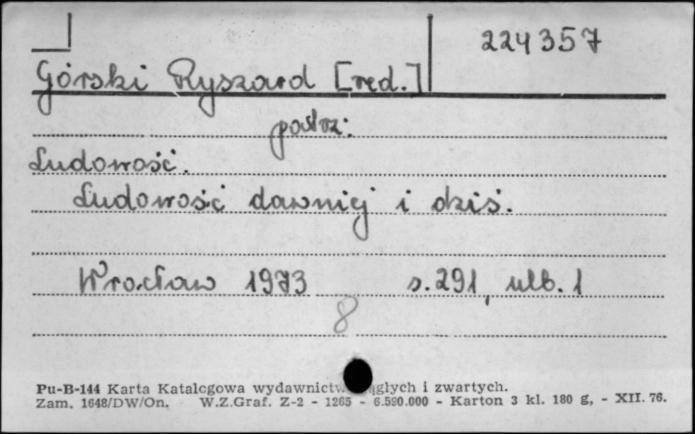 224357
Górski Ryszard [red.]
patrz:
Ludowość.
Ludowość dawniej i dziś.
Wrocław 1973 s. 291, nlb. 1
8
Pu-B-144 Karta Katalogowa wydawnictw ciągłych i zwartych.
Zam. 1648/DW/On. W.Z.Graf. Z-2 - 1265 - 6.590.000 - Karton 3 kl. 180 g, - XII. 76.